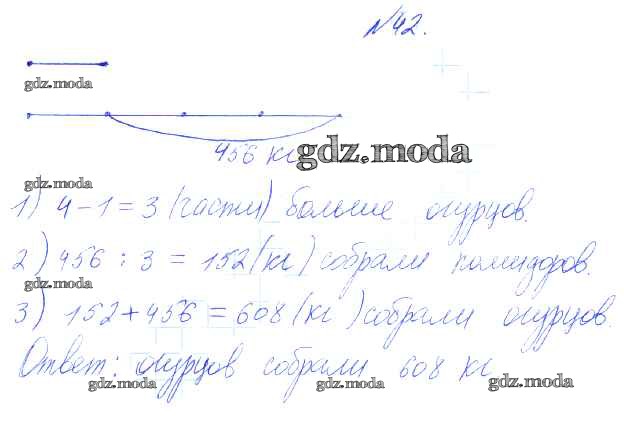 №42.
gdz.moda
456 кг gdz.moda
gdz.moda
1) 4 - 1 = 3 (части) больше огурцов.
2) 456 : 3 = 152 (кг) собрали помидоров.
gdz.moda
3) 152 + 456 = 608 (кг) собрали огурцов.
Ответ: огурцов собрали 608 кг
gdz.moda gdz.moda gdz.moda